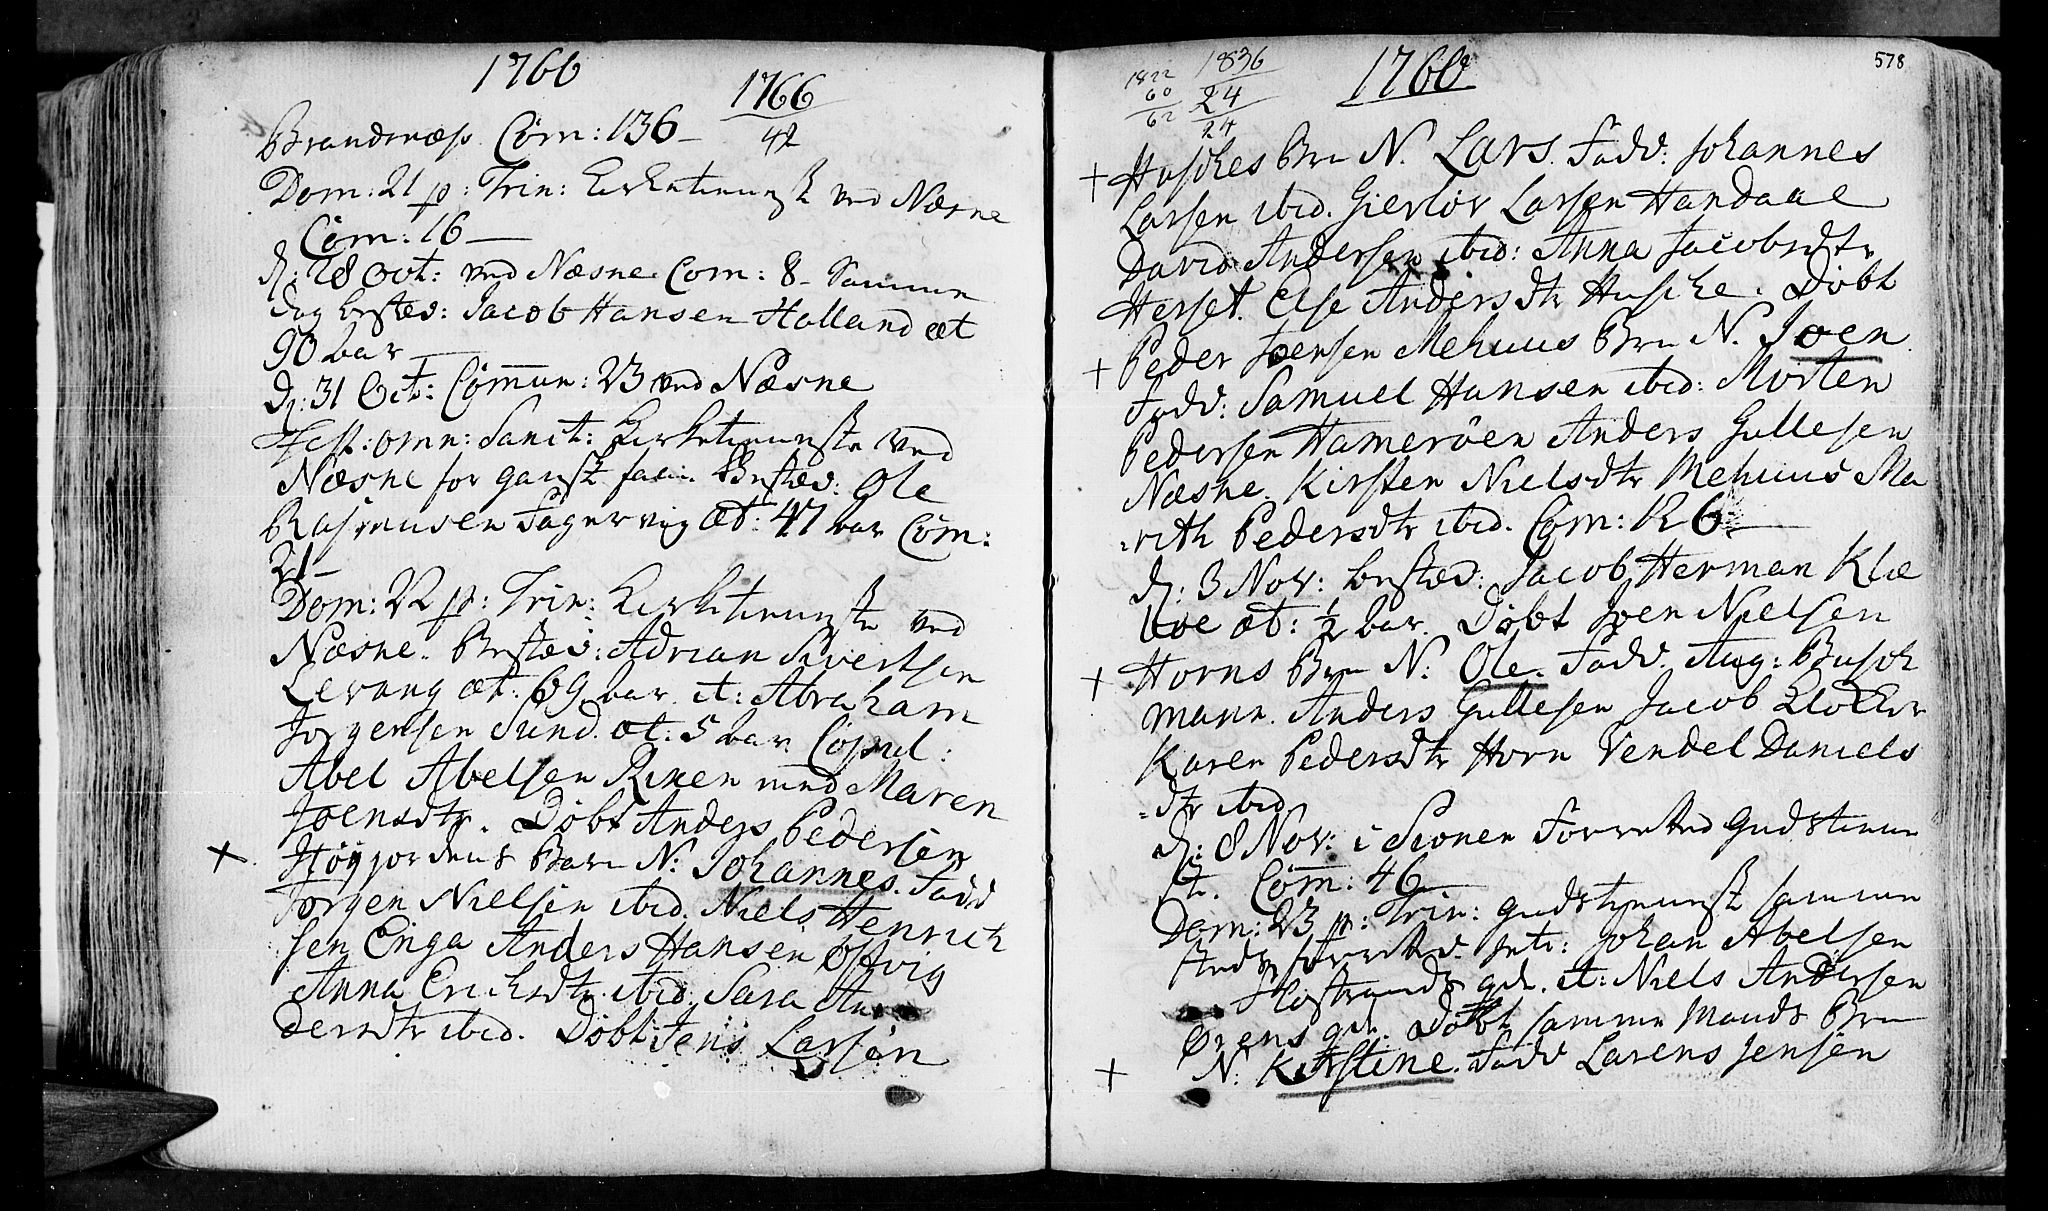 1766
1766
42
Brandsnæs. Com̄: 136 –
Dom: 21 p: Trin: Kirketienniste ved Næsne
Com̄: 16 —
d: 28 Oct: ved Næsne Com: 8 – Samme
dag bested: Jacob Hansen Holland æt
90 aar —
d: 31 Oct: Com̄un: 23 ved Næsne
Fest: omn: Sanct: Kirketienniste ved
Næsne for gansk faae. Bested: Ole
Rasmusen Fagervig æt: 47 aar Com̄:
21 –
Dom: 22 p: Trin: Kirketienniste ved
Næsne. Bested: Adrian Sivertsen
Levang æt: 69 aar it: Abraham
Jørgensen Sund æt: 5 aar Copul:
Abel Abelsen Remen med Maren
Joensdtr. Døbt Anders Pedersen
+ Høyjordens Barn N: Johannes. Fadd
Jørgen Nielsen ibid. Niels Henrich
sen Enga Anders Hansen Offvig
Anna Erichsdtr ibid. Sara An
dersdtr ibid. Døbt Jens Larsen
1822
60
62
1836
24
24
1766
578
+ Husches Brn N. Lars. Fadd: Johannes
Larsen ibid. Gierløv Larsen Handaae
David Andersen ibid: Anna Jacobsdtr
Herset. Else Andersdtr Husche. Døbt
+ Peder Joensen Mehuus Brn N. Joen
Fadd: Samuel Hansen ibid: Morten
Pedersen Hamerøen Anders Gullesen
Næsne. Kirsten Nielsdtr Mehuus Ma
-rith Pedersdtr ibid. Com̄: 126 —
d: 3 Nov: bested: Jacob Herman Klæ
boe æt: ½ aar. Døbt Joen Nielsen
+ Horns Brn N: Ole. Fadd. Aug: Busch
mann. Anders Gullesen Jacob Klokker
Karen Pedersdtr Horn Vendel Daniels
-dtr ibid
d: 8 Nov: i Sionen Forretted Gudstienne
st. Com̄: 46
Dom: 23 p: Trin: gudstienniste samme
steds forretted. Intr: Johan Abelsen
Flostrands qde. it: Niels Andersen
Ørens qde. Døbt samme Mands Brn
+ N: Kirstine. Fadd Larens Jensen